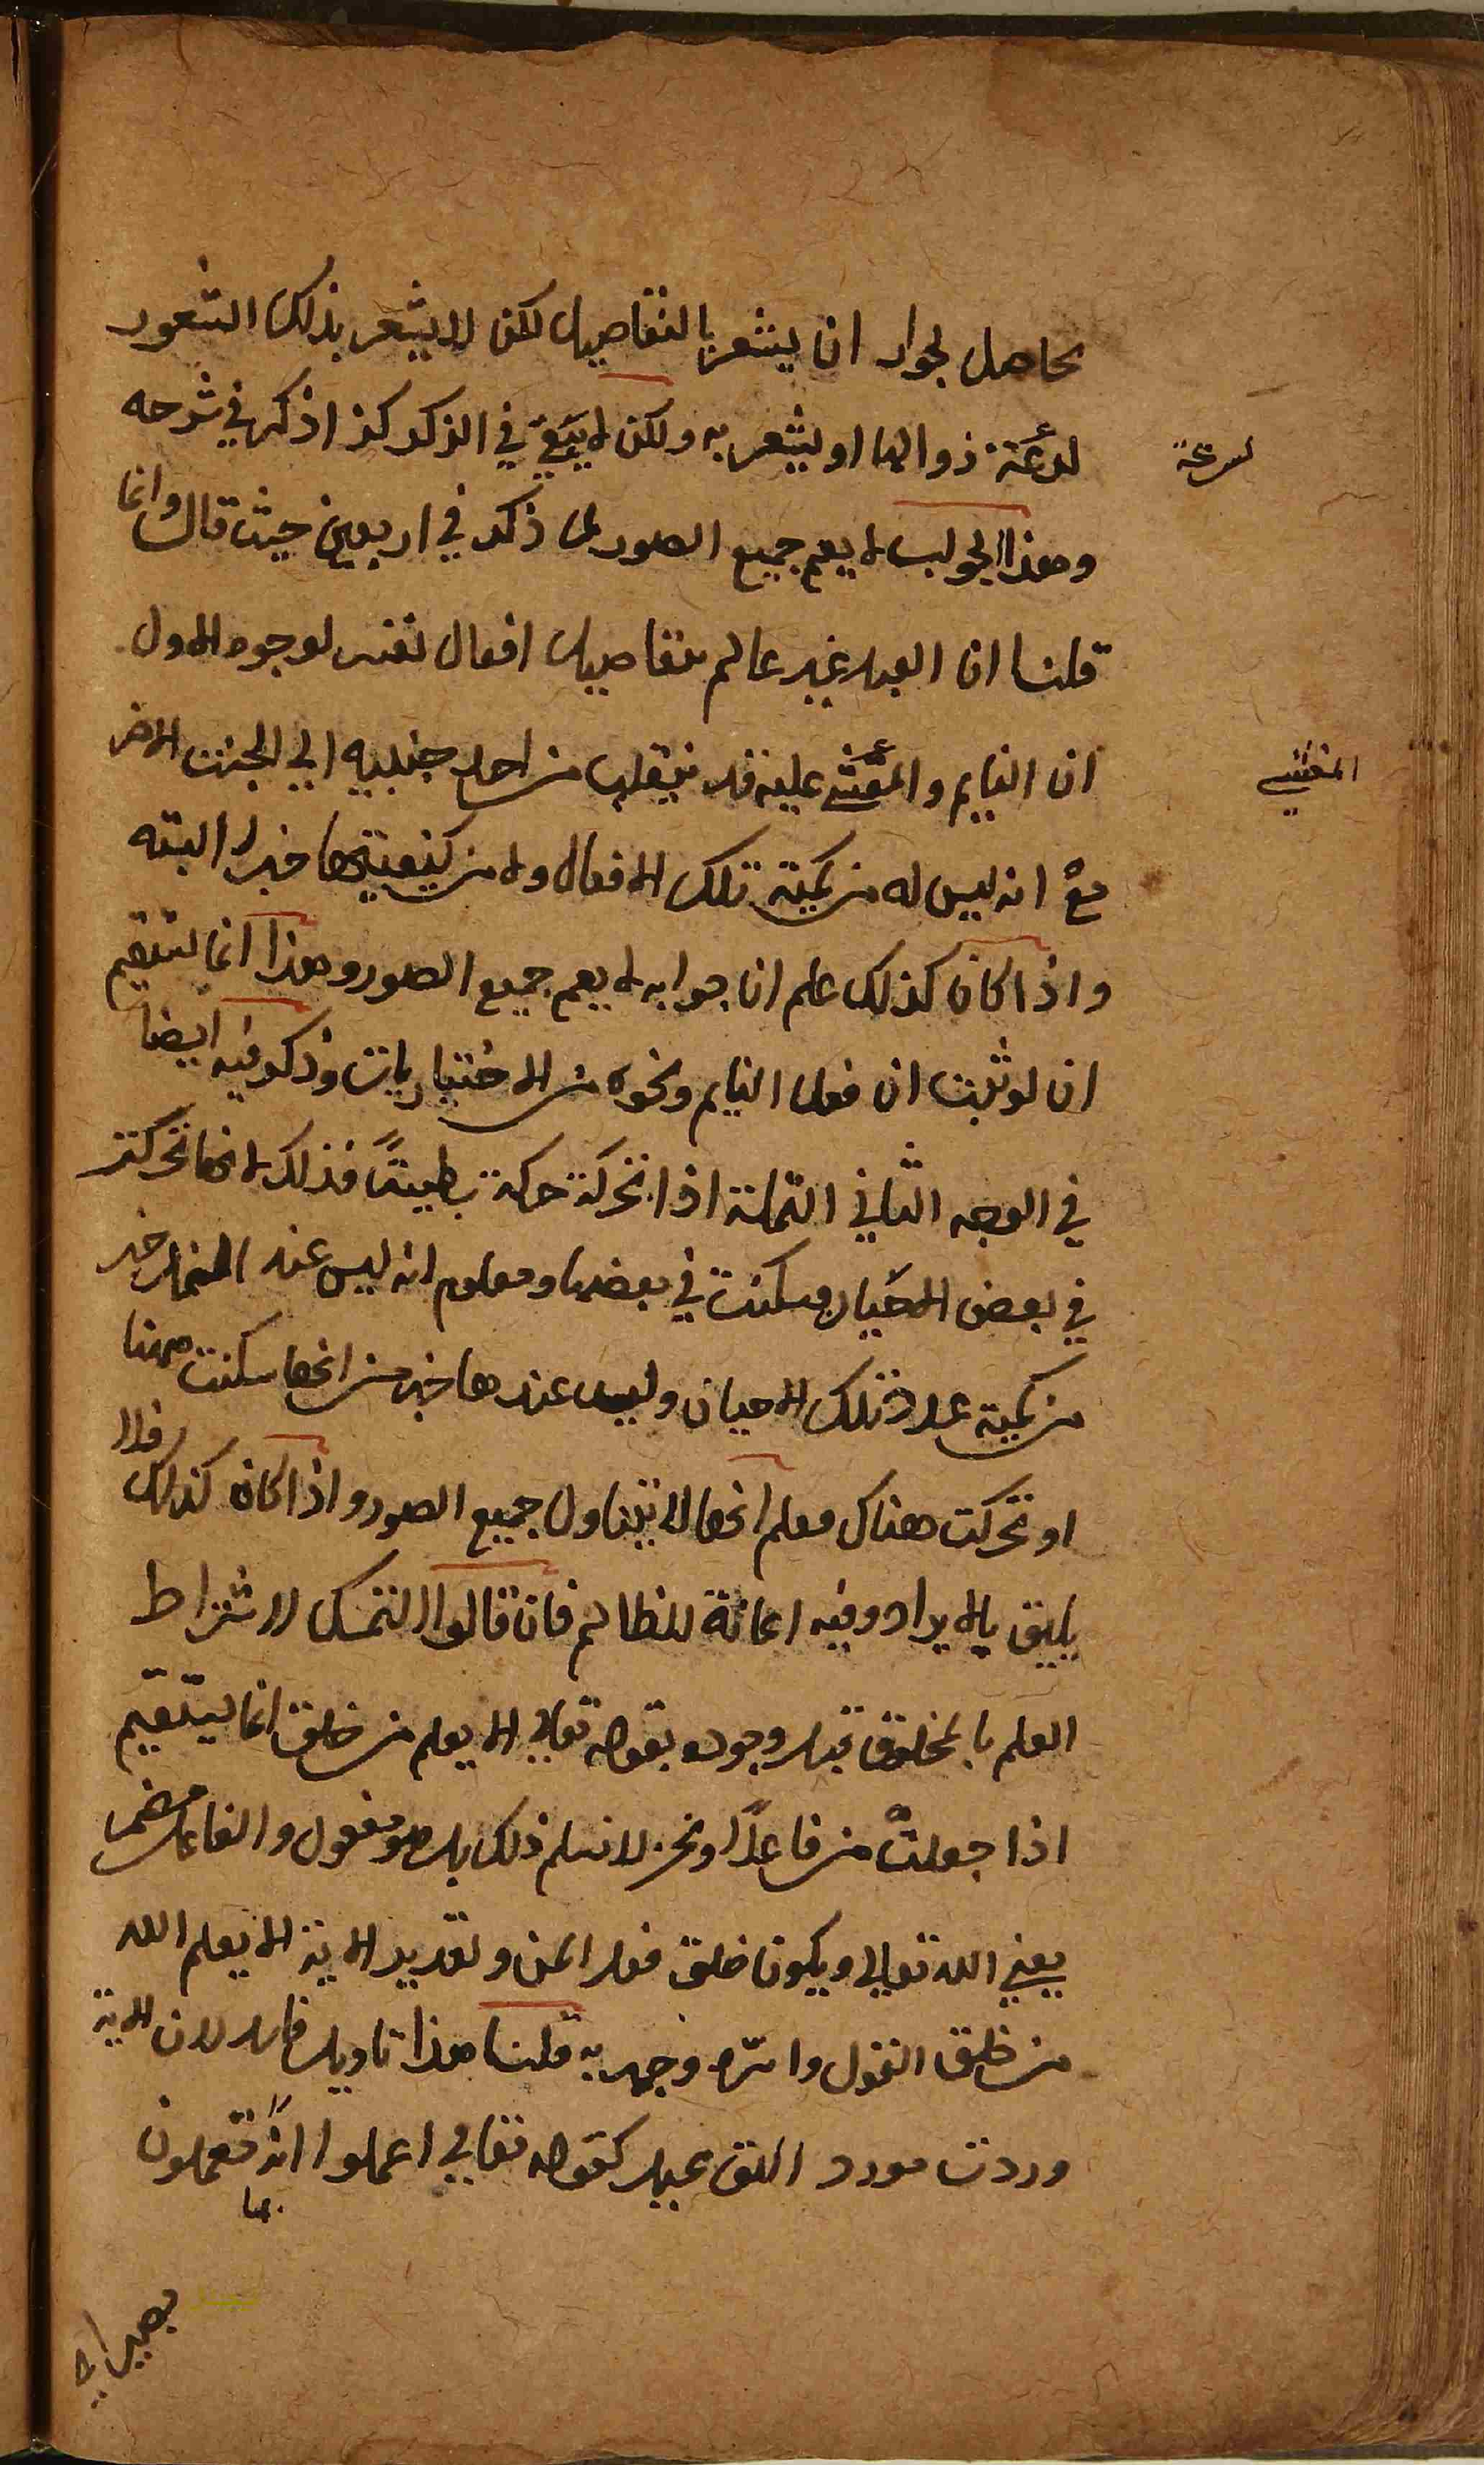 حاصل لجواز ان يشعر بالتفاصيل لكن لا يشعر بذلك الشعور
لسرعة زوالها او يشعر به ولكن لا يبقي في الذكر كذا ذكر في شرحه
لسرعة
وهذا الجواب لا يعم جميع الصور لما ذكر في اربعين حيث قال وانما
قلنا ان العبد غير عالم بتفاصيل افعال نفسه لوجوه الاول
ان النايم والمغشي عليه قد ينقلب من احد جنبيه الي الجنب الاخر
المغشي
مع انه ليس له من كمية تلك الافعال ولا من كيفيتها خبرا البته
واذا كان كذلك علم ان جوابه لا يعم جميع الصور وهذا انما يستقيم
ان لو ثبت ان فعل النايم ونحوه من الاختياريات وذكر فيه ايضا
في الوجه الثاني النملة اذا تحركة حركة بطيئة فذلك لانها تحركت
في بعض الاحيان وسكنت في بعضها ومعلوم انه ليس عند النملة خبر
من كمية عدد تلك الاحيان وليس عندها خبر من انها سكنت ههنا
او تحركت هناك فعلم انها لا يتناول جميع الصور واذا كان كذلك فلا
يليق بالايراد وفيه اعانة للظالم فان قالوا التمسك لاشتراط
العلم بالمخلوق قبل وجوده بقوله تعالي الا يعلم من خلق انما يستقيم
اذا جعلت من فاعلا ونحن لا نسلم ذلك بل هو مفعول والفاعل مضمر
يعني الله تعالي ويكون خلق فعل المن وتقدير الاية الا يعلم الله
من خلق القول واسره وجهر به قلنا هذا تاويل فاسد لان الاية
وردت مورد التق عبيد كقوله تعالي اعملوا انه تعملون
بما
بصير اي